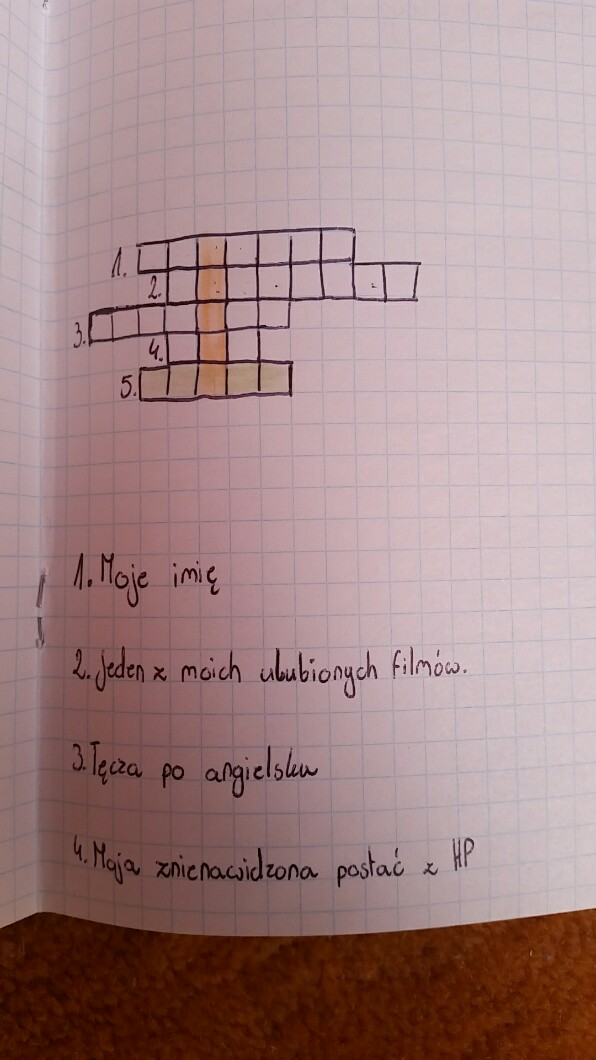 1.
2.
3.
4.
5.
1. Moje imię
2. jeden z moich ulubionych filmów.
3. Tęcza po angielsku
4. Moja znienawidzona postać z HP